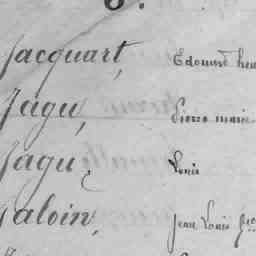 Jacquart, Edouard hen
Jagu, Pierre marie
Jagu, Louis
Jaloin, Jean Louis